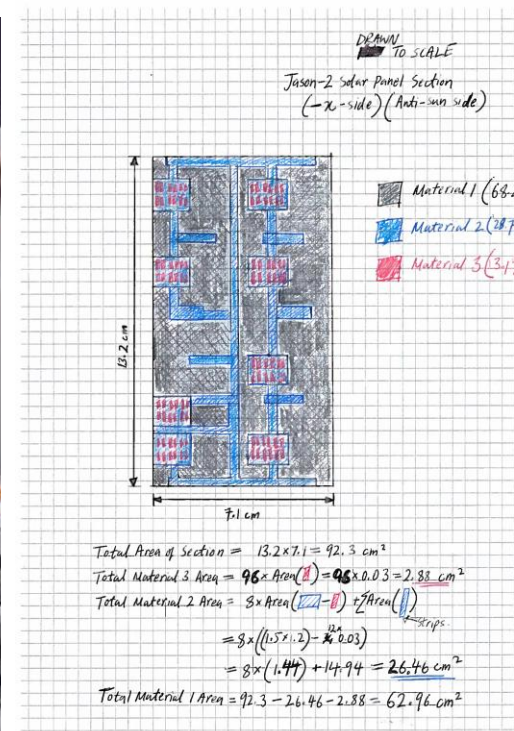 DRAWN
TO SCALE
Jason-2 Solar Panel Section
(-x-side) (Anti-sun side)
Material 1 (68.
Material 2 (28.7
Material 3 (3.1
13.2 cm
7.1 cm
Total Area of Section = 13.2 x 7.1 = 92.3 cm²
Total Material 3 Area = 96 x Area( ) = 96 x 0.03 = 2.88 cm²
Total Material 2 Area = 8 x Area( - ) + ΣArea( )
strips.
= 8 x ((1.5 x 1.2) - 12x 0.03)
= 8 x (1.44) + 14.94 = 26.46 cm²
Total Material 1 Area = 92.3 - 26.46 - 2.88 = 62.96 cm²